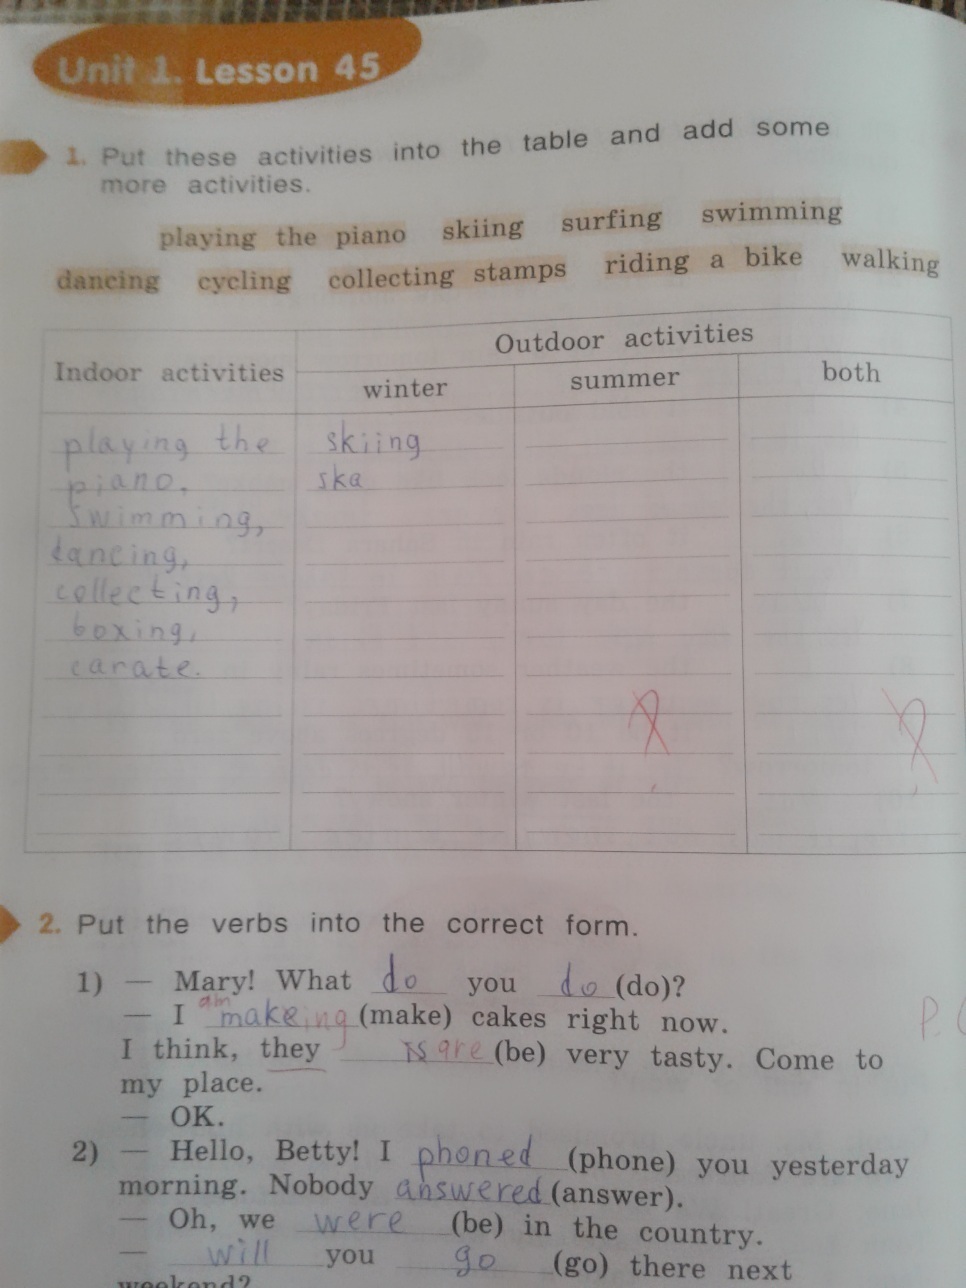 Unit 1. Lesson 45
1. Put these activities into the table and add some
more activities.
playing the piano skiing surfing swimming
dancing cycling collecting stamps riding a bike walking
Indoor activities Outdoor activities
winter summer both
playing the skiing
piano, ska
swimming,
dancing,
collecting,
boxing,
carate.
2. Put the verbs into the correct form.
1) — Mary! What do you do (do)?
— I am makeing (make) cakes right now.
I think, they is are (be) very tasty. Come to
my place.
— OK.
2) — Hello, Betty! I phoned (phone) you yesterday
morning. Nobody answered (answer).
— Oh, we were (be) in the country.
— will you go (go) there next
weekend?